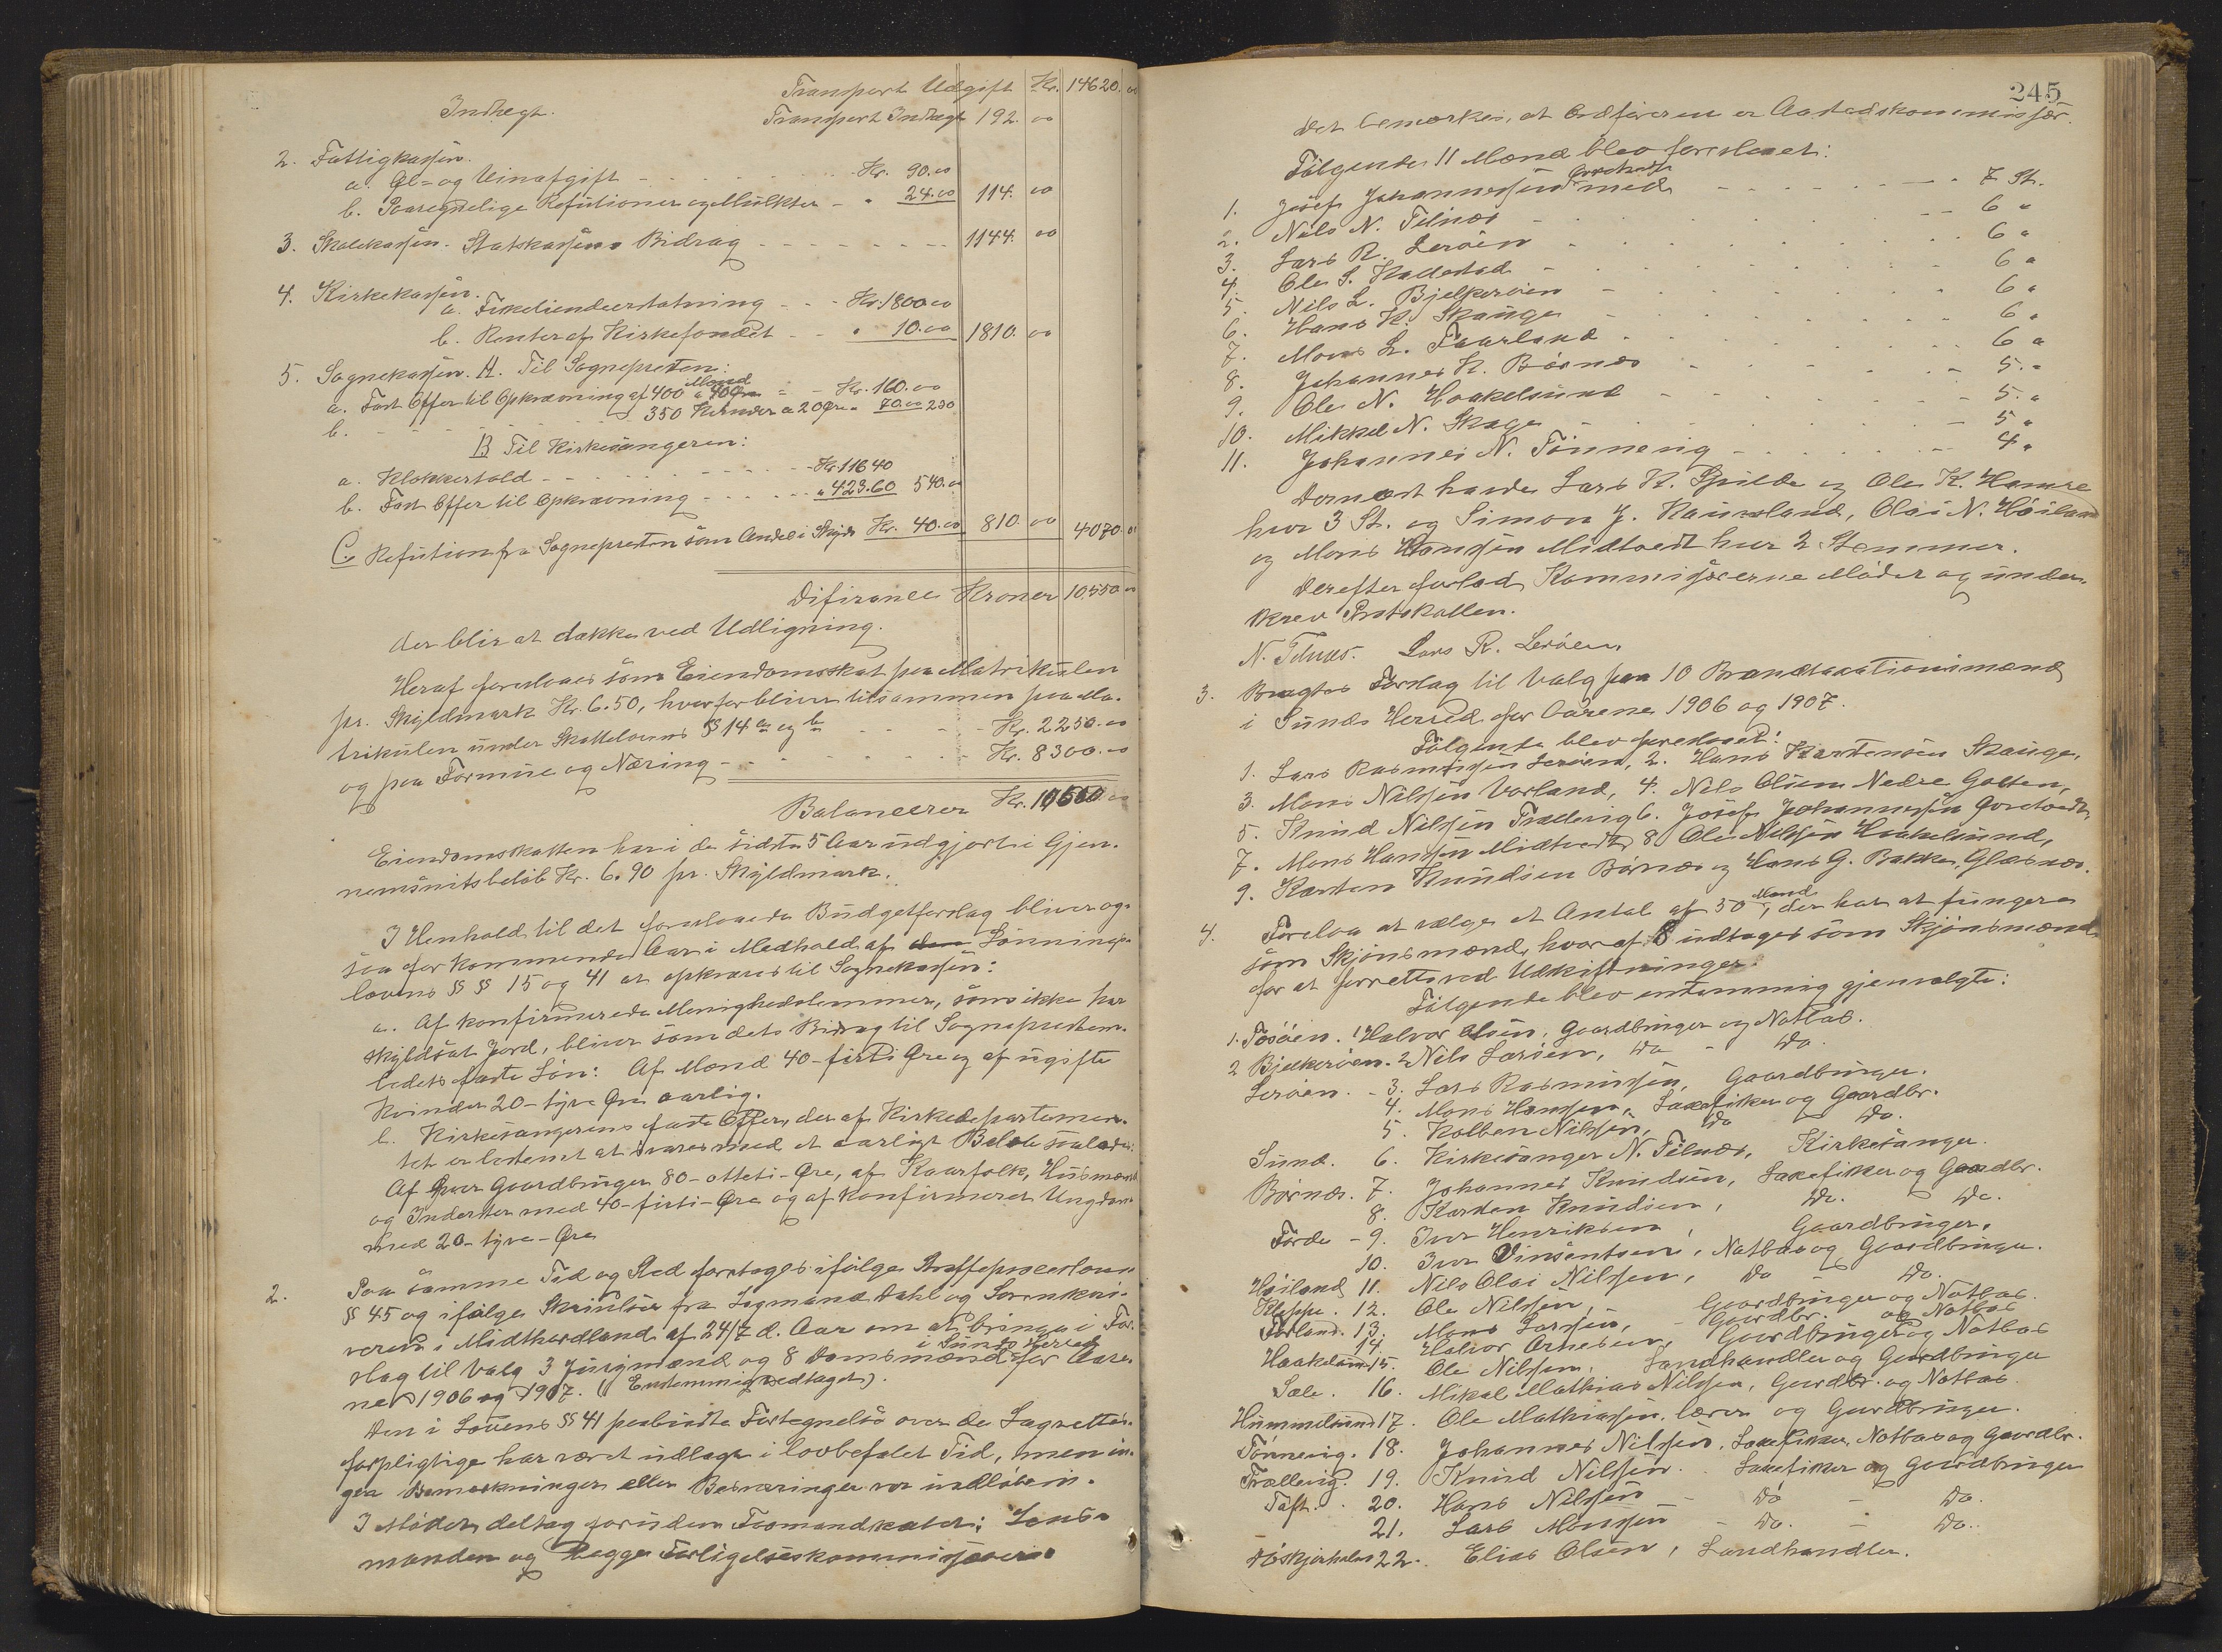 Transport Udgift Kr. 14620. 00
Indtægt. Transport Indtægt 192. 00
2. Fattigkassen.
a. Øl- og Vinafgift - - - Kr. 90.00
b. Paaregnelige Refutioner og Mulkter - " 24.00 114. 00
3. Skolekassen. Statskassens Bidrag - - - 1144. 00
4. Kirkekassen.
a. Fisketiendeerstatning - - - Kr. 1800 00
b. Renter af Kirkefondet - - " 10.00 1810. 00
5. Sognekassen. A. Til Sognepresten:
a. Fast Offer til Opkrævning af 400 Mænd a 40 Øre - - Kr. 160.00
b. - - - 350 Kvinder a 20 Øre " 70.00 230
B Til Kirkesangeren:
a. Klokkertold - - - Kr. 116 40
b. Fast Offer til Opkrævning - - - " 423.60 540.00
C. Refution fra Sognepresten som Andel i Skyds Kr. 40.00 810. 00 4070. 00
Difirance Kroner 10550 00
der blir at dække ved Udligning.
Heraf foreslaaes som Eiendomsskat paa Matrikulen
pr. Skyldmark Kr. 6.50, hvorfor bliver tilsammen paa Ma-
trikulen under Skattelovens § 14 a og b - - - Kr. 2250.00
og paa Formue og Næring - - - Kr. 8300.00
Balancerer Kr. 10550.00
Eiendomsskatten har i de sidste 5 Aar udgjort i Gjen-
nemsnitsbeløb Kr. 6.90 pr. Skyldmark.
I Henhold til det foreslaaede Budgetforslag bliver og-
saa for kommende Aar i Medhold af den Lønnings-
lovens §§ 15 og 41 at opkræves til Sognekassen:
a. Af konfirmerede Menighedslemmer, som ikke har
skyldsat Jord, bliver som dets Bidrag til Sogneprestem-
bedets faste Løn: Af Mænd 40-firti Øre og af ugifte
Kvinder 20-tyve Øre aarlig.
b. Kirkesangerens faste Offer, der af Kirkedepartemen-
tet er bestemt at svares med et aarligt Beløb saaledes:
Af hver Gaardbruger 80-otteti-Øre, af Kaarfolk, Husmænd
og Inderster med 40-firti-Øre og af konfirmeret Ungdom
med 20-tyve-Øre
2. Paa samme Tid og Sted foretoges ifølge Straffeproceslovens
§ 45 og ifølge Skrivelse fra Lagmand Dahl og Sorenskri-
veren i Midthordland af 24/7 d. Aar om at bringe i For-
slag til Valg 3 Jurymænd og 8 Domsmænd i Sunds Herred for Aare-
ne 1906 og 1907. (Enstemmig vedtaget).
Den i Lovens §§ 41 paabudte Fortegnelse over de Lagrettes-
forpligtige har været udlagt i lovbefalet Tid, men in-
gen Bemærkninger eller Besværinger var indløbem.
I Mødet deltog foruden Formandskabet: Lens-
manden og begge Forligelseskommissærer.
245
Det bemærkes, at Ordføreren er Aastedskommissær.
Følgende 11 Mænd blev foreslaaet:
1. Josef Johannessen med - - - 7 St.
2. Nils N. Telnæs - - - 6 "
3. Lars R. Lerøen - - - 6 "
4. Ole S. Kallestad - - - 6 "
5. Nils L. Bjelkerøen - - - 6 "
6. Hans K. Skauge - - - 6 "
7. Mons L. Vaarland - - - 6 "
8. Johannes K. Børnæs - - - 5. "
9. Ole N. Haakelsund - - - 5. "
10. Mikkel N. Skage - - - 5 "
11. Johannes N. Tønnevig - - - 4 "
Dernæst havde Lars K. Spilde og Ole K. Hamre
hver 3 St. og Simon J. Kausland, Olai N. Høiland
og Mons Hansen Midtvedt hver 2 Stemmer.
Derefter forlod Kommissærerne Mødet og under-
skrev Protokollen.
N. Telnæs. Lars R. Lerøen.
3. Bragtes Forslag til Valg paa 10 Brandtaxationsmænd
i Sunds Herred for Aarene 1906 og 1907.
Følgende blev foreslaaet:
1. Lars Rasmussen Lerøen, 2. Hans Karstensen Skauge,
3. Mons Nilssen Vorland, 4. Nils Olsen Nedre Golten,
5. Knud Nilssen Trællevig 6. Josef Johannessen
7. Mons Hanssen Midtvedt, 8 Ole Nilssen Haakelsund,
9. Karsten Knudsen Børnæs og Hans G. Bakke, Glæsnæs.
4. Forelaa at vælge et Antal af 30 Mænd, der har at fungere
som Skjønsmænd, hvoraf 8 udtages som Skjønsmænd
for at forrette ved Udskiftninger.
Følgende blev enstemmig gjenvalgte:
1. Tøsøen. 1 Halvor Olsen, Gaardbruger og Notbas.
2 Bjelkerøen. 2 Nils Larsen, Do - Do.
Lerøen. - 3. Lars Rasmussen, Gaardbruger.
4. Mons Hanssen, Laxefisker og Gaardbr.
5. Kolben Nilssen, Do Do.
Sund. 6. Kirkesanger N. Telnæs, Kirkesanger.
Børnæs. 7. Johannes Knudsen, Laxefisker og Gaardbr.
8. Karsten Knudsen, Do. Do.
Førde - 9. Iver Henriksen, Gaardbruger.
10. Iver Vinsentsen, Notbas og Gaardbruger.
Høiland 11. Nils Olai Nilssen, Do - Do.
Kleppe. 12. Ole Nilssen, - Gaardbruger og Notbas.
Førland. 13. Mons Larssen, - Gaardbr. og Notbas
14. Halvor Arnesen, Gaardbruger og Notbas
Haakelsund 15. Ole Nilssen, Landhandler og Gaardbruger
Sæle. 16. Mikal Mathias Nilssen, Gaardbr. og Notbas.
Hummelsund 17. Ole Mathiassen, lærer og Gaardbruger.
Tønnevig. 18. Johannes Nilssen, Laxefisker, Notbas og Gaardbr.
Trællevig. 19. Knud Nilssen. Laxefisker og Gaardbruger
Toft. 20. Hans Nilssen - Do - Do.
21. Lars Monssen - Do. - Do.
22. Elias Olsen, Landhandler.